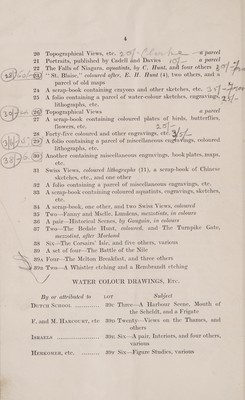 4
20 Topographical Views, etc. a parcel
21 Portraits, published by Cadell and Davies 10/- a parcel
22 The Falls of Niagara, aquatints, by C. Hunt, and four others
23 " St. Blaise," coloured after, E. R. Hunt (4), two others, and a
parcel of old maps
24 A scrap-book containing crayons and other sketches, etc.
25 A folio containing a parcel of water-colour sketches, engravings,
lithographs, etc.
26 Topographical Views a parcel
27 A scrap-book containing coloured plates of birds, butterflies,
flowers, etc.
28 Forty-five coloured and other engravings, etc.
29 A folio containing a parcel of miscellaneous engravings, coloured
lithographs, etc.
30 Another containing miscellaneous engravings, book plates, maps,
etc.
31 Swiss Views, coloured lithographs (11), a scrap-book of Chinese
sketches, etc., and one other
32 A folio containing a parcel of miscellaneous engravings, etc.
33 A scrap-book containing coloured aquatints, engravings, sketches,
etc.
34 A scrap-book, one other, and two Swiss Views, coloured
35 Two—Fanny and Maelle. Landeau, mezzotints, in colours
36 A pair—Historical Scenes, by Gaugain, in colours
37 Two—The Bedale Hunt, coloured, and The Turnpike Gate,
mezzotint, after Morland
38 Six—The Corsairs' Isle, and five others, various
39 A set of four—The Battle of the Nile
39A Four—The Melton Breakfast, and three others
39B Two—A Whistler etching and a Rembrandt etching
WATER COLOUR DRAWINGS, ETC.
By or attributed to LOT Subject
DUTCH SCHOOL 39C Three—A Harbour Scene, Mouth of
the Scheldt, and a Frigate
F. and M. HARCOURT, etc 39D Twenty—Views on the Thames, and
others
ISRAELS 39E Six—A pair, Interiors, and four others,
various
HERKOMER, etc. 39F Six—Figure Studies, various